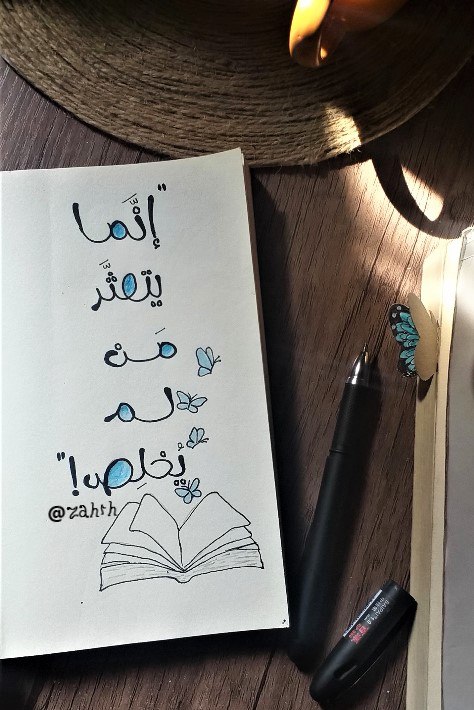 "إنَّما
يتعثَّر
مَنْ
لم
يُخلِص!"
@zahth